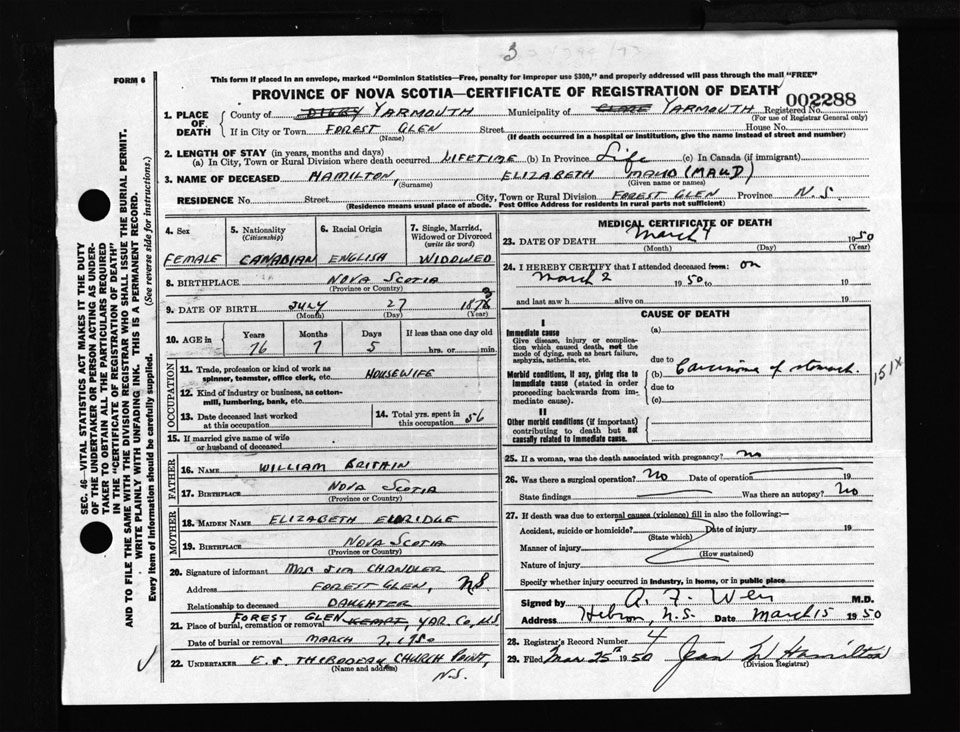 3
FORM 6
This form if placed in an envelope, marked "Dominion Statistics—Free, penalty for improper use $300," and properly addressed will pass through the mail "FREE"
PROVINCE OF NOVA SCOTIA—CERTIFICATE OF REGISTRATION OF DEATH
002288
1. PLACE OF DEATH
County of DIGBY YARMOUTH Municipality of CLARE YARMOUTH Registered No.
(For use of Registrar General only)
If in City or Town FOREST GLEN Street House No.
(Name) (If death occurred in a hospital or institution, give the name instead of street and number)
2. LENGTH OF STAY (in years, months and days)
(a) In City, Town or Rural Division where death occurred LIFETIME (b) In Province Life (c) In Canada (if immigrant)
3. NAME OF DECEASED HAMILTON, ELIZABETH MAUD (MAUD)
(Surname) (Given name or names)
RESIDENCE No. Street City, Town or Rural Division FOREST GLEN Province N.S.
(Residence means usual place of abode. Post Office Address for residents in rural parts not sufficient)
4. Sex
FEMALE
5. Nationality
(Citizenship)
CANADIAN
6. Racial Origin
ENGLISH
7. Single, Married, Widowed or Divorced
(write the word)
WIDOWED
8. BIRTHPLACE NOVA SCOTIA
(Province or Country)
9. DATE OF BIRTH JULY 27 1873
(Month) (Day) (Year)
10. AGE in
Years Months Days If less than one day old
76 7 5 hrs. or min.
OCCUPATION
11. Trade, profession or kind of work as
spinner, teamster, office clerk, etc. HOUSEWIFE
12. Kind of industry or business, as cotton-
mill, lumbering, bank, etc.
13. Date deceased last worked
at this occupation
14. Total yrs. spent in
this occupation 56
15. If married give name of wife
or husband of deceased
FATHER
16. NAME WILLIAM BRITAIN
17. BIRTHPLACE NOVA SCOTIA
(Province or Country)
MOTHER
18. MAIDEN NAME ELIZABETH ELDRIDGE
19. BIRTHPLACE NOVA SCOTIA
(Province or Country)
20. Signature of informant MRS JIM CHANDLER
Address FOREST GLEN, N.S.
Relationship to deceased DAUGHTER
21. Place of burial, cremation or removal FOREST GLEN KEMPT, YAR. Co, N.S.
Date of burial or removal MARCH 7, 1950
22. UNDERTAKER E. S. THIBODEAU, CHURCH POINT, N.S.
(Name and address)
MEDICAL CERTIFICATE OF DEATH
23. DATE OF DEATH March 1 1950
(Month) (Day) (Year)
24. I HEREBY CERTIFY that I attended deceased from: on
March 2 1950 to 19
and last saw h alive on 19
CAUSE OF DEATH
I
Immediate cause
Give disease, injury or complica-
tion which caused death, not the
mode of dying, such as heart failure,
asphyxia, asthenia, etc.
(a)
due to
Morbid conditions, if any, giving rise to
immediate cause (stated in order
proceeding backwards from im-
mediate cause).
(b) Carcinoma of stomach.
due to
(c)
151X
II
Other morbid conditions (if important)
contributing to death but not
causally related to immediate cause.
25. If a woman, was the death associated with pregnancy? no
26. Was there a surgical operation? No Date of operation 19
State findings Was there an autopsy? No
27. If death was due to external causes (violence) fill in also the following:—
Accident, suicide or homicide? Date of injury 19
(State which)
Manner of injury
(How sustained)
Nature of injury
Specify whether injury occurred in industry, in home, or in public place
Signed by A. F. Weir M.D.
Address Hebron, N.S. Date March 15 1950
28. Registrar's Record Number 4
29. Filed Mar 25th 1950 Jean W Hamilton
(Division Registrar)
SEC. 46—VITAL STATISTICS ACT MAKES IT THE DUTY
OF THE UNDERTAKER OR PERSON ACTING AS UNDER-
TAKER TO OBTAIN ALL THE PARTICULARS REQUIRED
IN THE "CERTIFICATE OF REGISTRATION OF DEATH"
AND TO FILE THE SAME WITH THE DIVISION REGISTRAR WHO SHALL ISSUE THE BURIAL PERMIT.
WRITE PLAINLY WITH UNFADING INK. THIS IS A PERMANENT RECORD.
Every item of information should be carefully supplied. (See reverse side for instructions.)